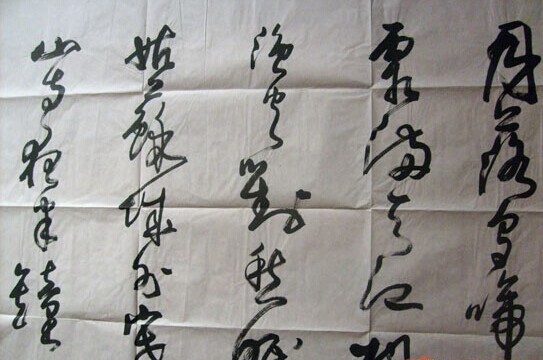 月落烏啼
霜滿天江
漁火對愁眠
姑蘇城外寒
山寺夜半鐘